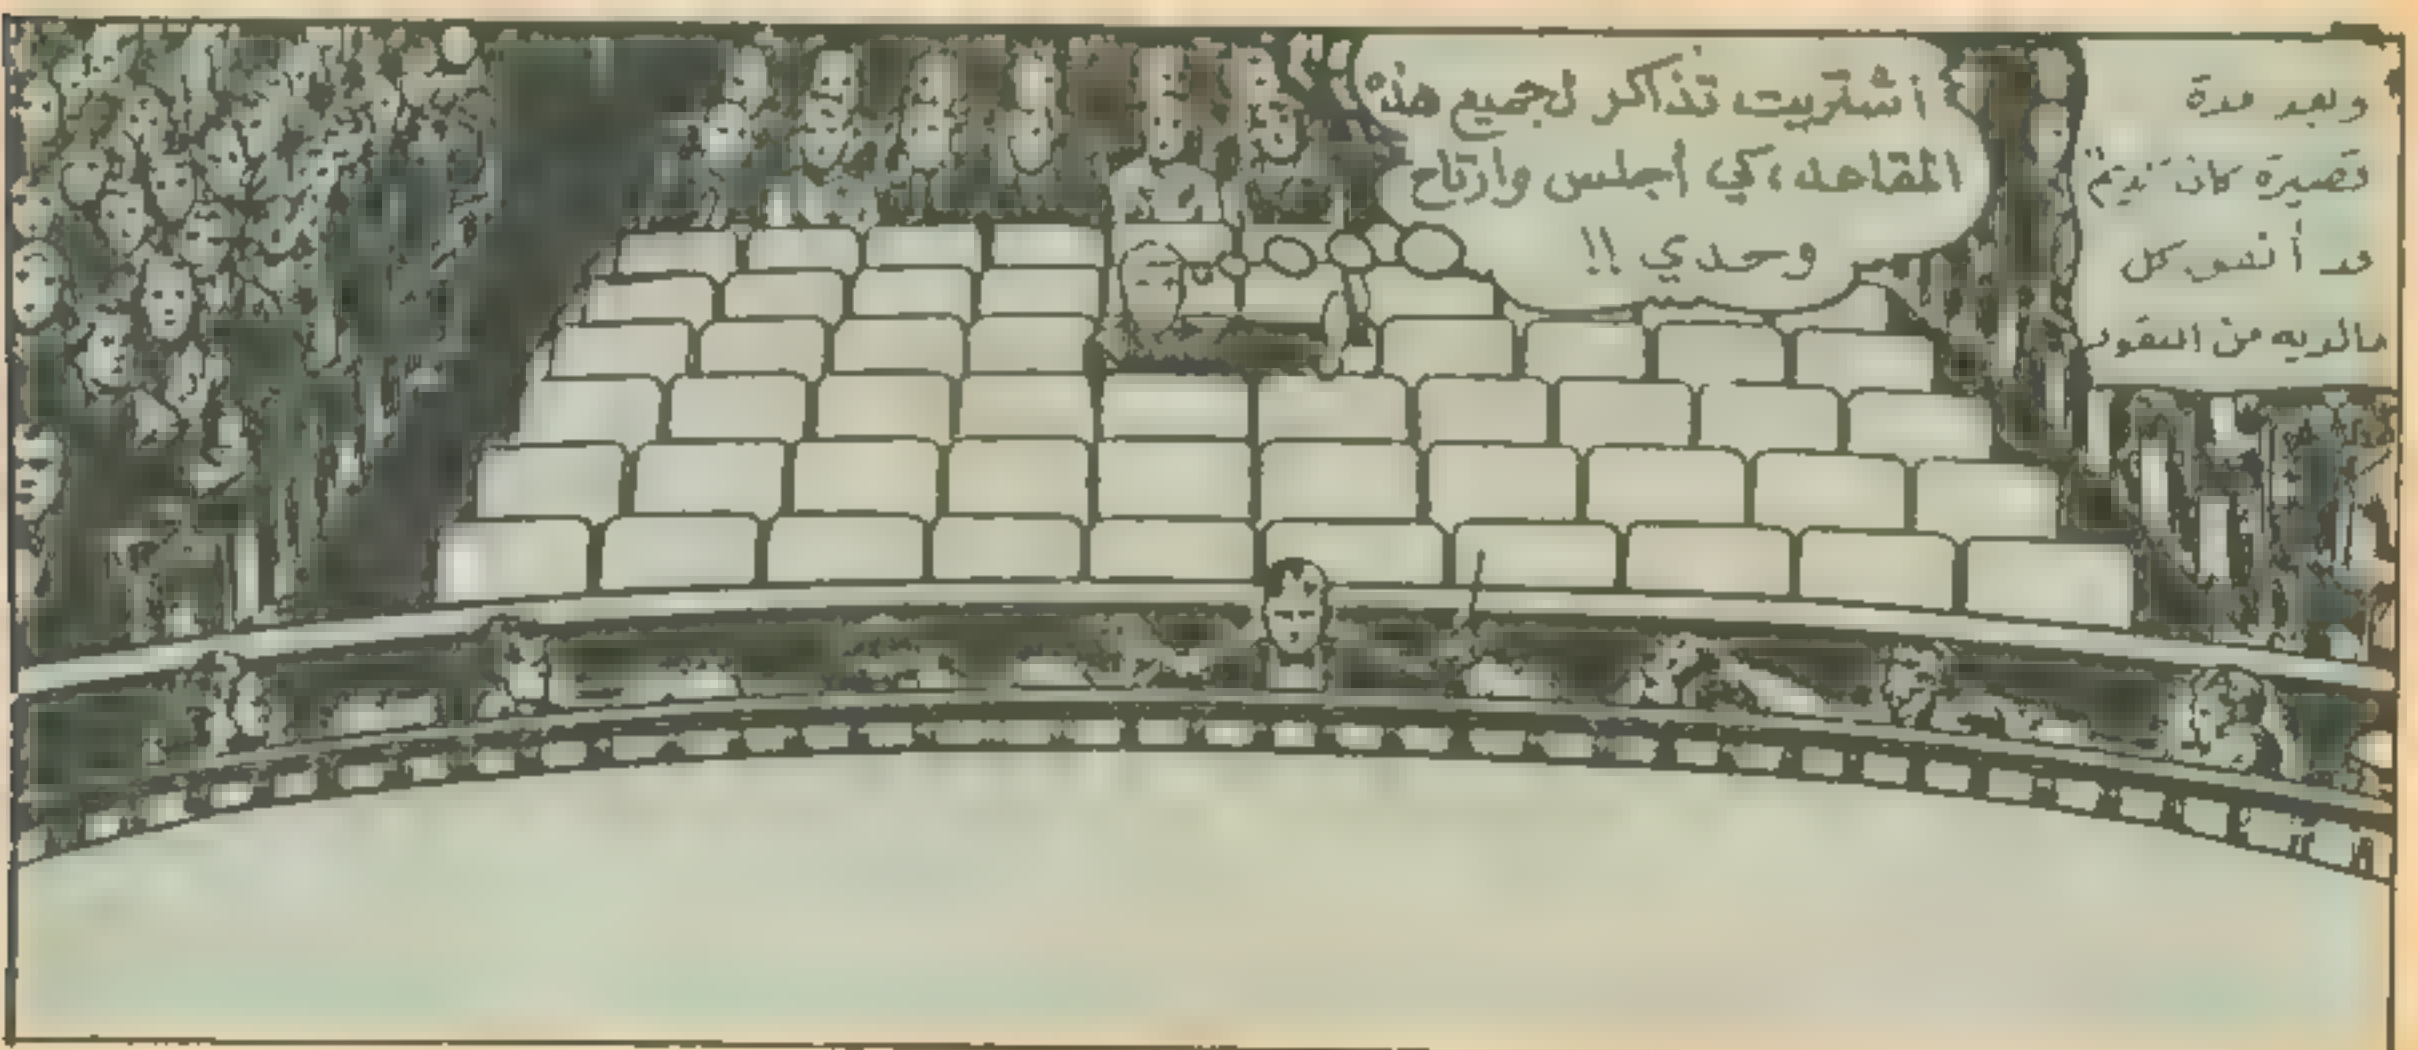 وبعد مدة
قصيرة كان
قد أنفق كل
مالديه من النقود
اشتريت تذاكر لجميع هذه
المقاعد، كي أجلس وارتاح
وحدي !!